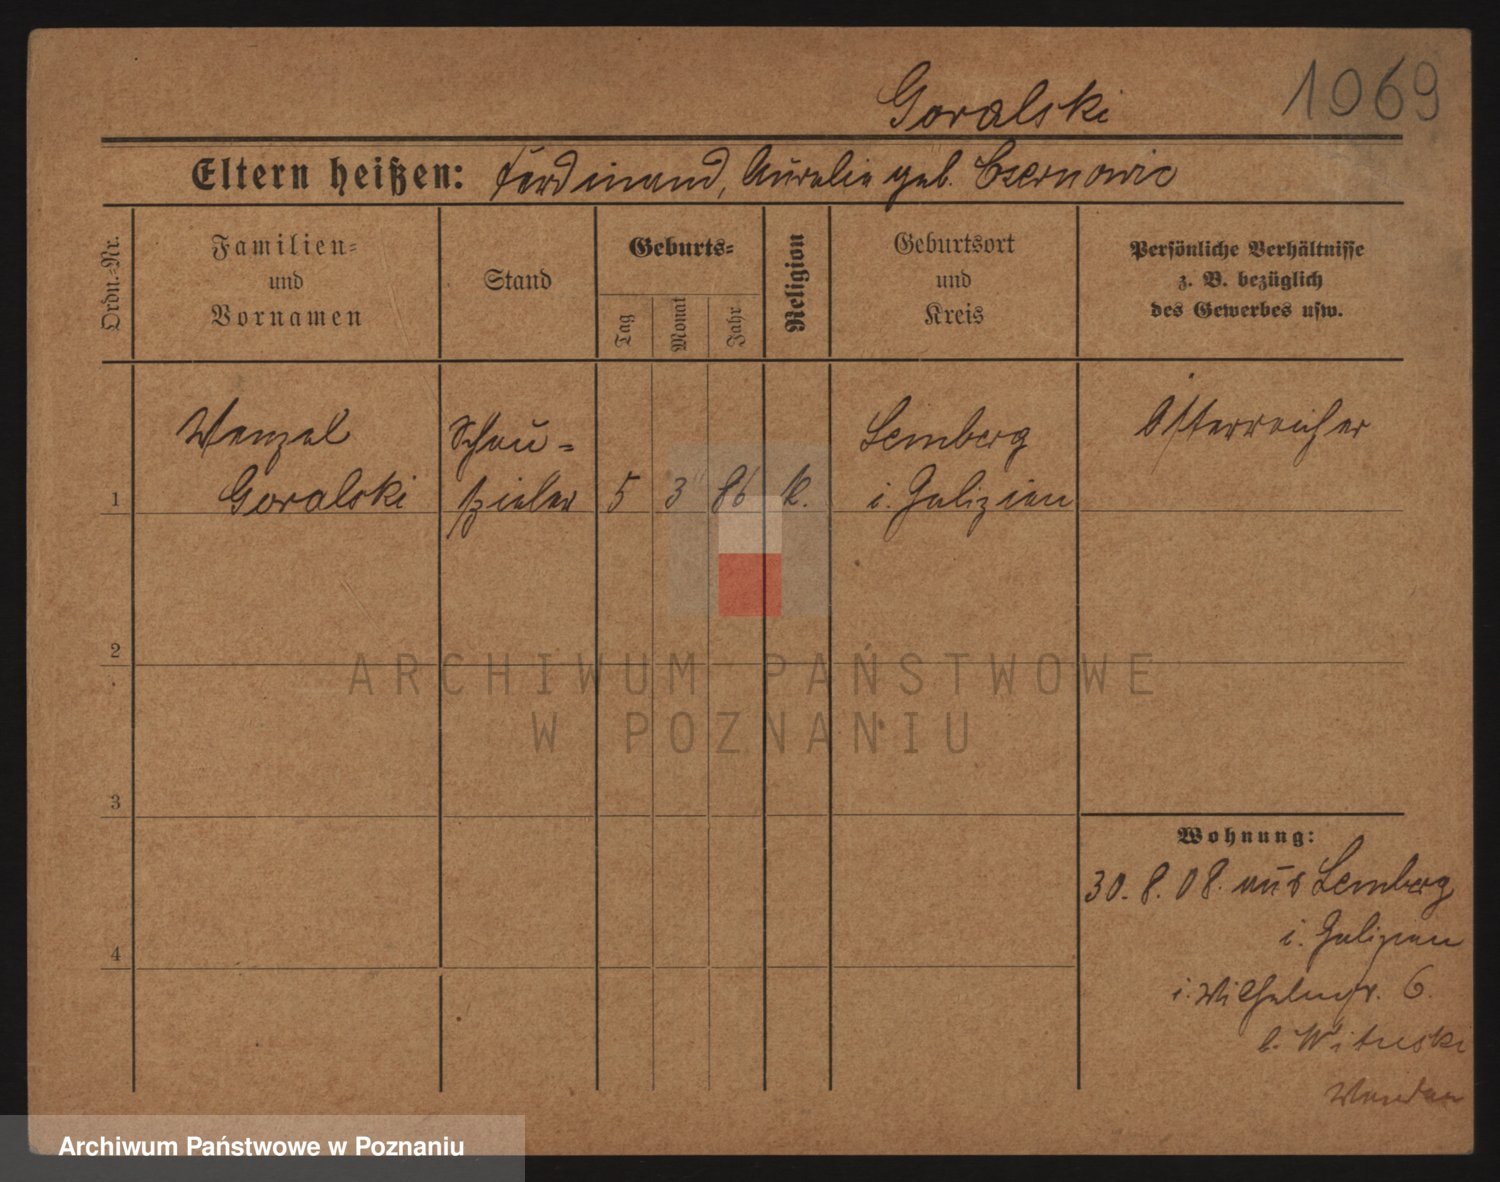 Goralski 1069
Eltern heißen: Ferdinand, Aurelie geb. Czernowic
Ordn.-Nr.
Familien-
und
Vornamen
Stand
Geburts-
Tag
Monat
Jahr
Religion
Geburtsort
und
Kreis
Persönliche Verhältnisse
z. B. bezüglich
des Gewerbes usw.
Wenzel
Goralski
Schau-
spieler
1
5
3
86
k.
Lemberg
i. Galizien
Österreicher
2
3
4
Wohnung:
30. 8. 08. aus Lemberg
i. Galizien
i. Wilhelmstr. 6.
b. Wituski
ARCHIWUM PAŃSTWOWE
W POZNANIU
Archiwum Państwowe w Poznaniu